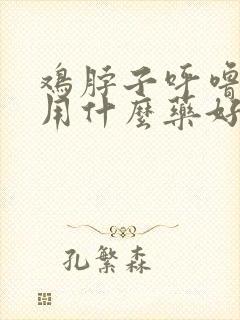 鸡脖子呼噜
用什麼藥好
孔繁森